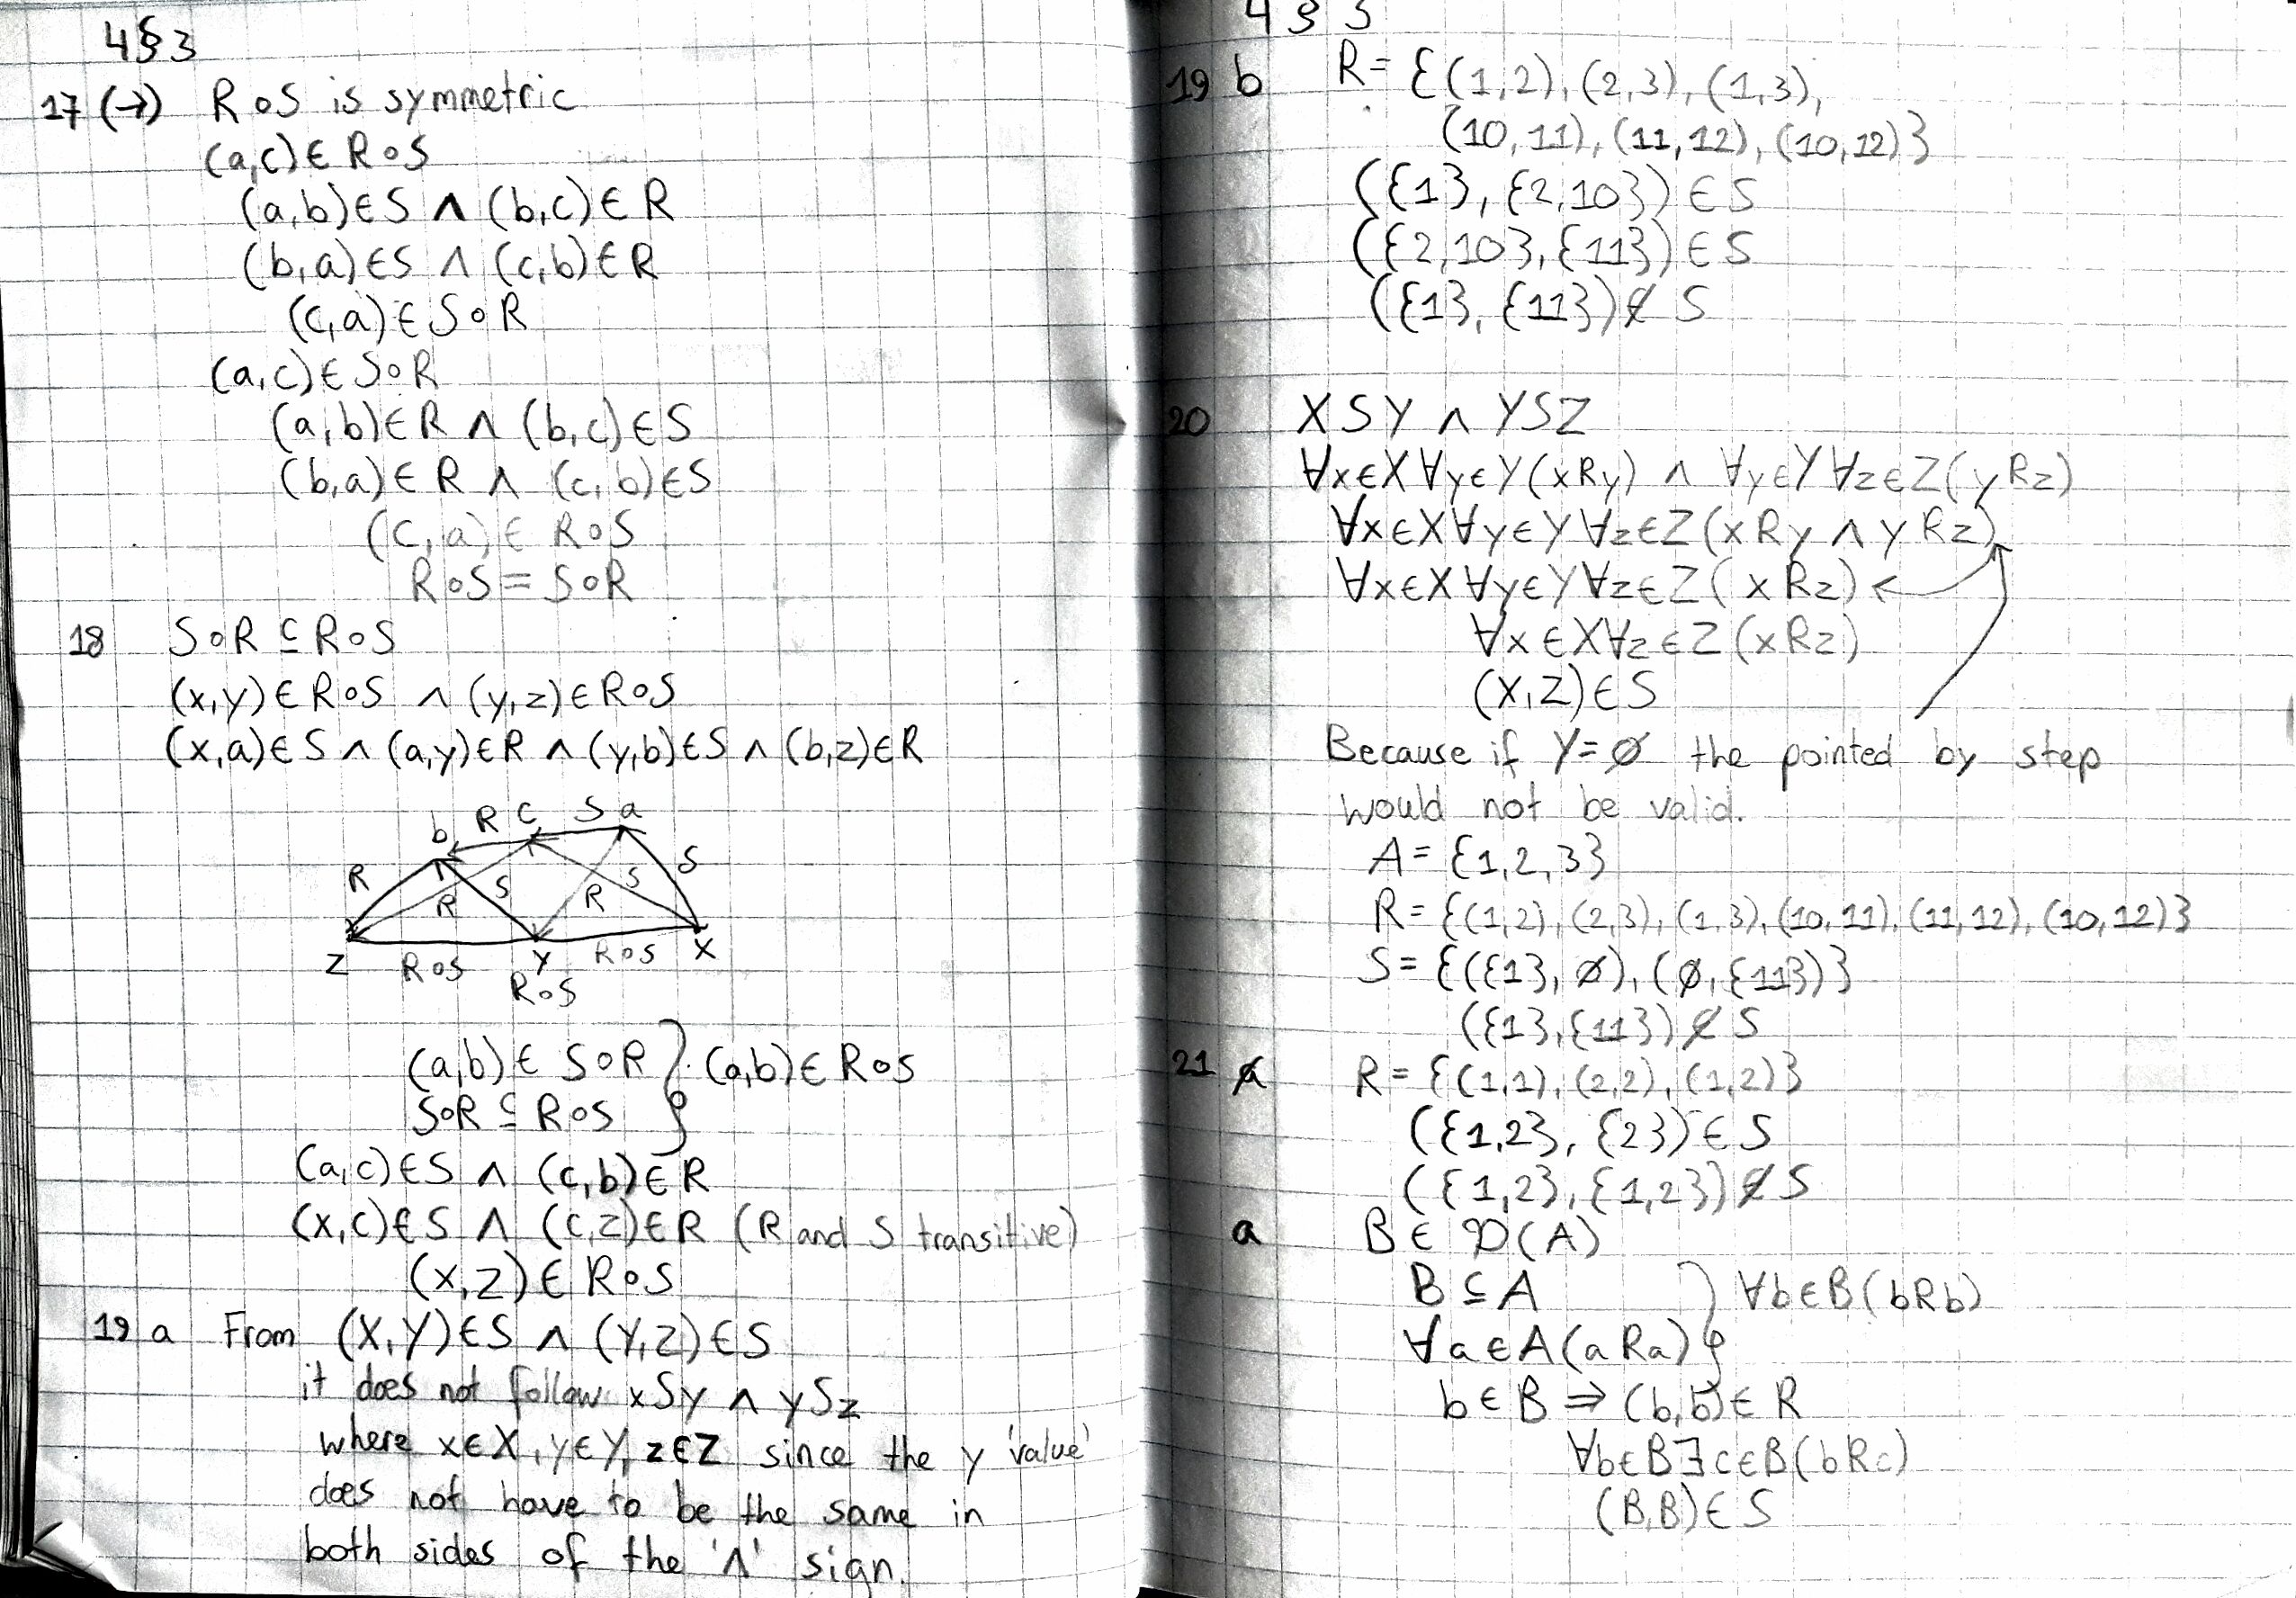 4§3
17 (→) R∘S is symmetric
(a,c)∈R∘S
(a,b)∈S ∧ (b,c)∈R
(b,a)∈S ∧ (c,b)∈R
(c,a)∈S∘R
(a,c)∈S∘R
(a,b)∈R ∧ (b,c)∈S
(b,a)∈R ∧ (c,b)∈S
(c,a)∈ R∘S
R∘S = S∘R
18 S∘R ⊆ R∘S
(x,y)∈R∘S ∧ (y,z)∈R∘S
(x,a)∈S ∧ (a,y)∈R ∧ (y,b)∈S ∧ (b,z)∈R
b R c S a
R R S R S S
z R∘S y R∘S x
R∘S
(a,b)∈ S∘R } (a,b)∈R∘S
S∘R ⊆ R∘S
(a,c)∈S ∧ (c,b)∈R
(x,c)∈S ∧ (c,z)∈R (R and S transitive)
(x,z)∈R∘S
19 a From (X,Y)∈S ∧ (Y,Z)∈S
it does not follow xSy ∧ ySz
where x∈X, y∈Y, z∈Z since the y 'value'
does not have to be the same in
both sides of the '∧' sign.
4§3
19 b R= {(1,2), (2,3), (1,3),
(10,11), (11,12), (10,12)}
({1}, {2,10}) ∈ S
({2,10}, {11}) ∈ S
({1}, {11}) ∉ S
20 XSY ∧ YSZ
∀x∈X∀y∈Y(xRy) ∧ ∀y∈Y∀z∈Z(yRz)
∀x∈X∀y∈Y∀z∈Z(xRy ∧ yRz)
∀x∈X∀y∈Y∀z∈Z(xRz)
∀x∈X∀z∈Z(xRz)
(X,Z)∈S
Because if Y=∅ the pointed by step
would not be valid.
A= {1,2,3}
R= {(1,2), (2,3), (1,3), (10,11), (11,12), (10,12)}
S= {({1}, ∅), (∅, {11})}
({1},{11}) ∉ S
21 a R= {(1,1), (2,2), (1,2)}
({1,2}, {2}) ∈ S
({1,2}, {1,2}) ∉ S
a B∈ 𝒫(A)
B ⊆ A } ∀b∈B(bRb)
∀a∈A(aRa)
b∈B ⇒ (b,b)∈R
∀b∈B∃c∈B(bRc)
(B,B)∈S